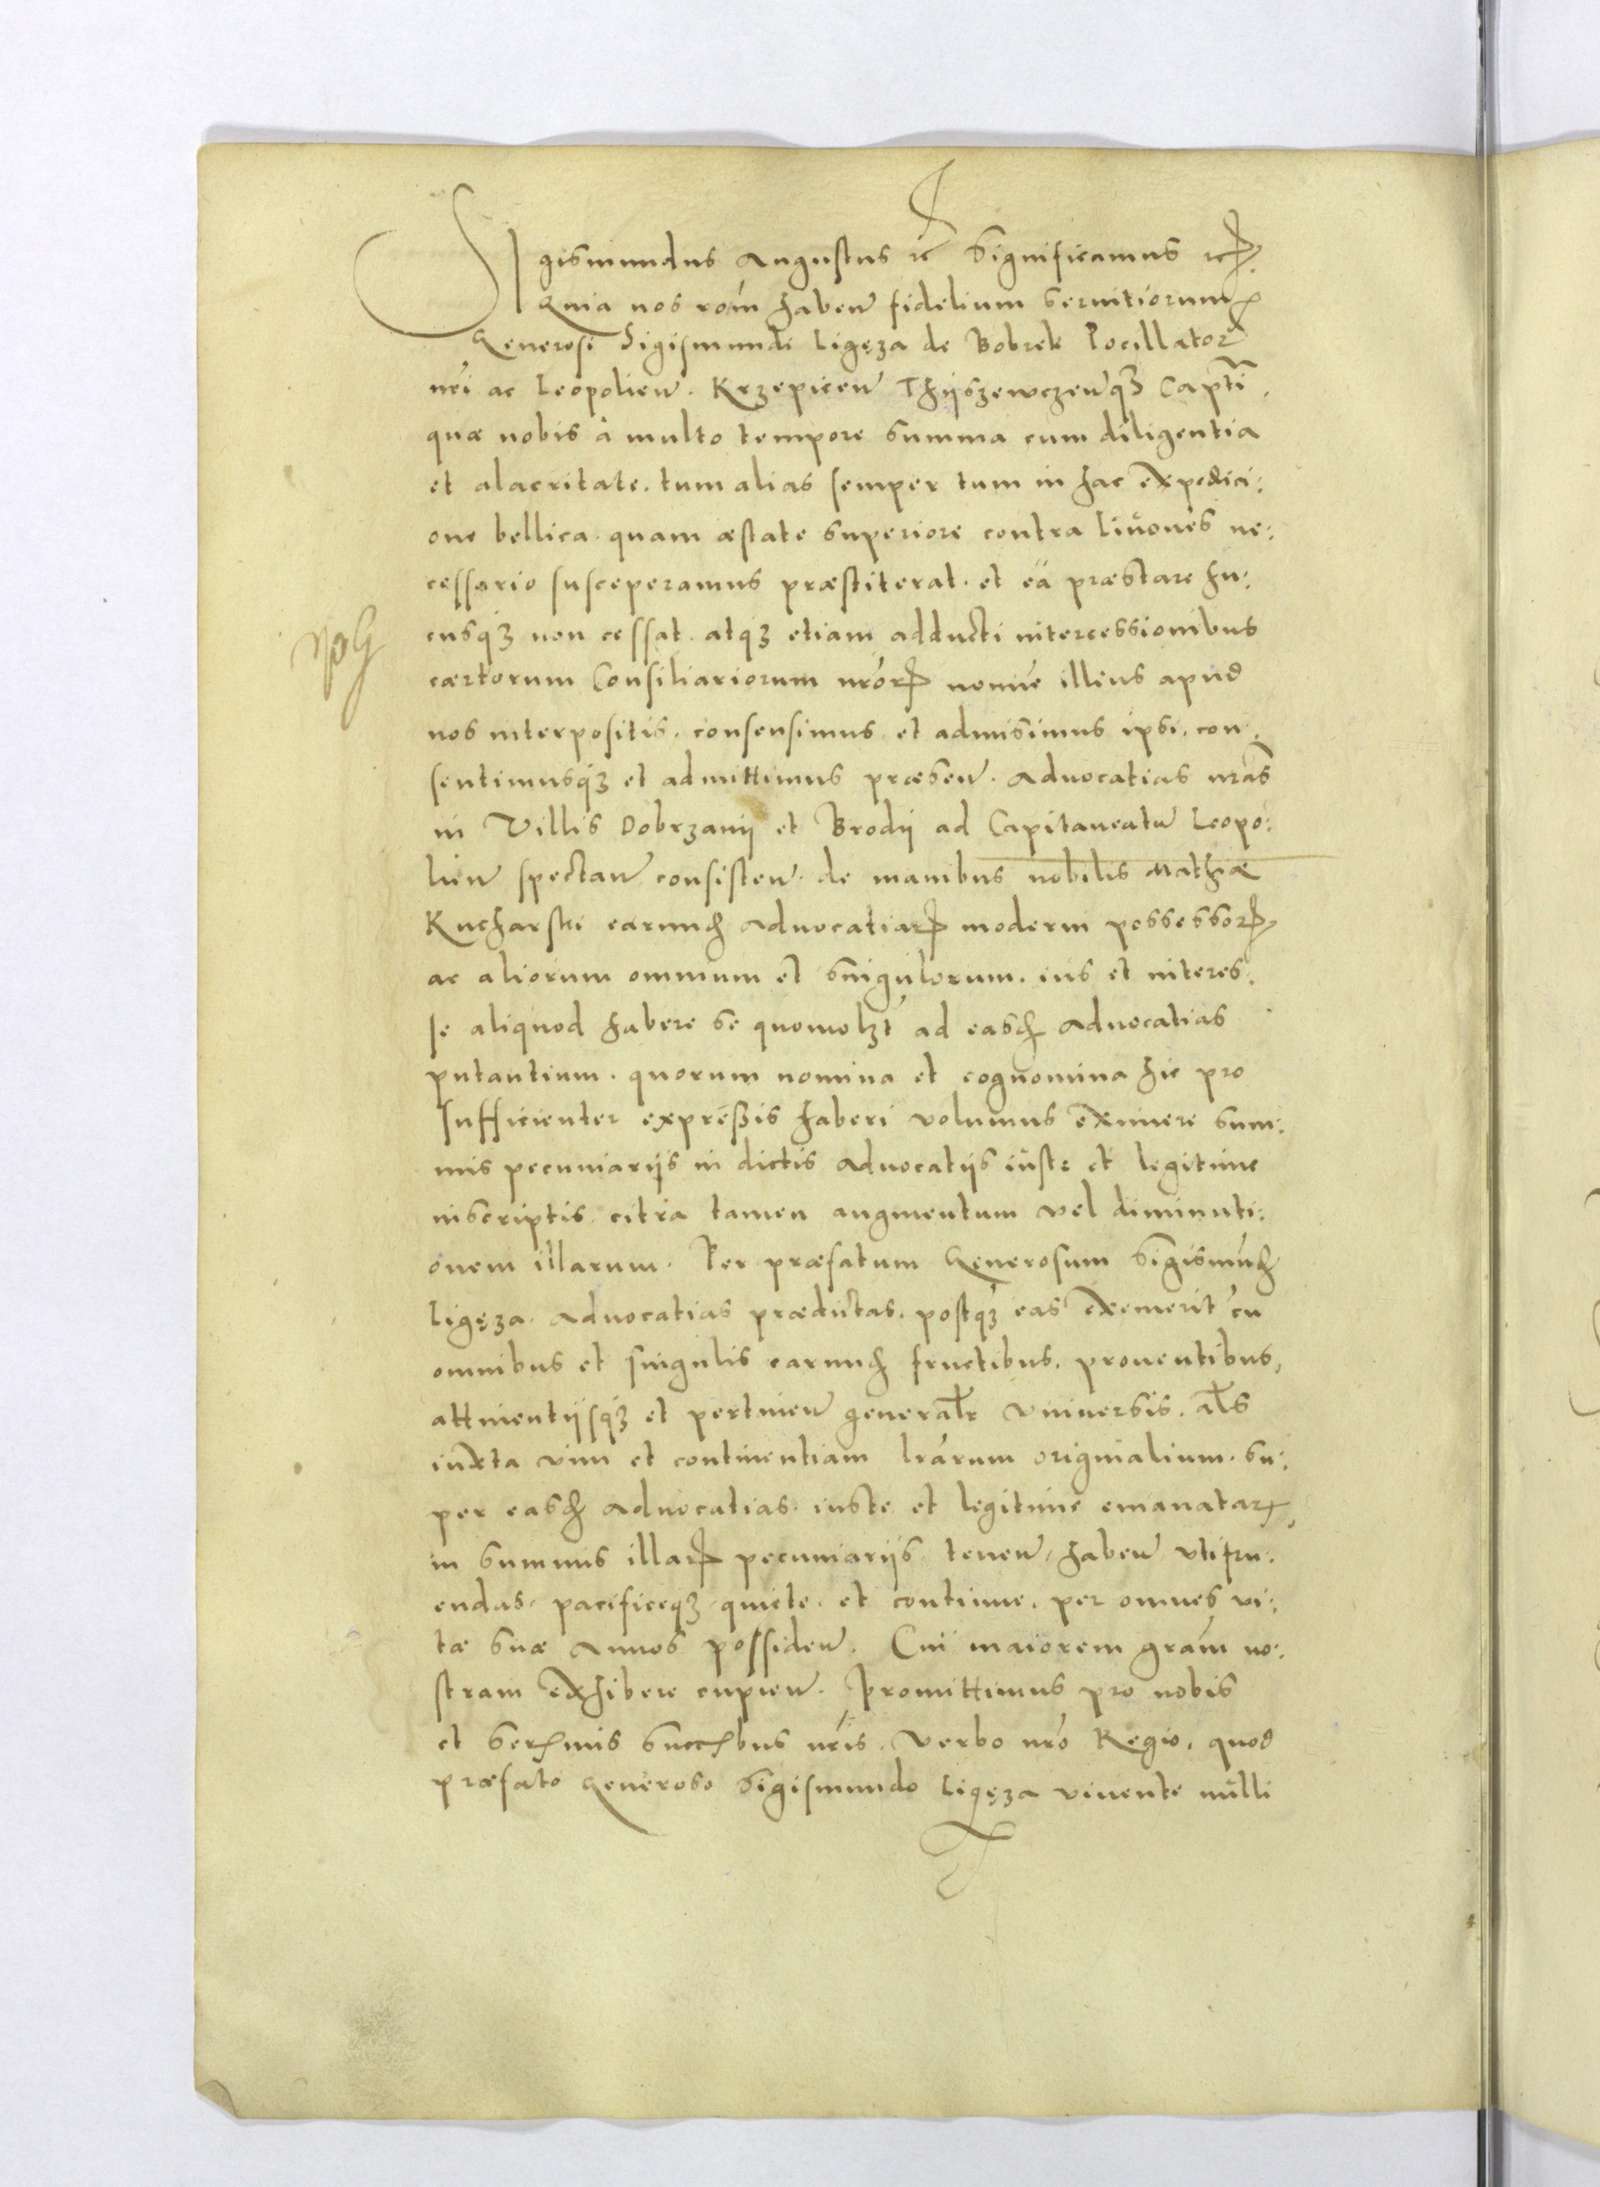 Sigismundus Augustus etc Significamus etc.
Quia nos rom haben fidelium seruitiorum
Generosi Sigismundi Ligęza de Bobrek Pocillator
nri ac Leopolien. Krzepicen Thijszewczenqz Capti.
quæ nobis à multo tempore summa cum diligentia
et alacritate. tum alias semper tum in hac expedici:
one bellica. quam æstate superiore contra Liuones ne:
cessario susceperamus præstiterat. et ea præstare hu:
cusqz non cessat. atqz etiam adducti intercessionibus
cærtorum Consiliariorum nror nomine illius apud
nos interpositis. consensimus et admisimus ipsi. con:
sentimusqz et admittimus præsen. Aduocatias nras
in Villis Dobrzanij et Brodij ad Capitaneatu Leopo:
lien spectan consisten. de manibus nobilis Mathiæ
Kucharski earund Aduocatiar moderni possessor
ac aliorum omnium et singulorum. ius et interes:
se aliquod habere se quomolzt ad easd Aduocatias
putantium. quorum nomina et cognomina hic pro
sufficienter expreßis haberi volumus eximere sum:
mis pecuniarijs in dictis Aduocatijs iuste et legitime
inscriptis. citra tamen augmentum vel diminuti:
onem illarum. Per præfatum Generosum Sigismud
Ligęza. Aduocatias prædictas. postqz eas exemerit cu
omnibus et singulis earund fructibus. prouentibus,
attinentijsqz et pertinen generalr vniuersis. als
iuxta vim et continentiam lrarum originalium. su:
per easd Aduocatias. iuste et legitime emanatar
in summis illar pecuniarijs tenen, haben vtifru:
endas. pacificeqz quiete. et continue. per omnes vi:
tæ suæ annos possiden. Cui maiorem gram no:
stram exhibere cupien. Promittimus pro nobis
et Sermis Succbus nris. Verbo nro Regio. quod
præfato Generoso Sigismundo Ligęza viuente nulli